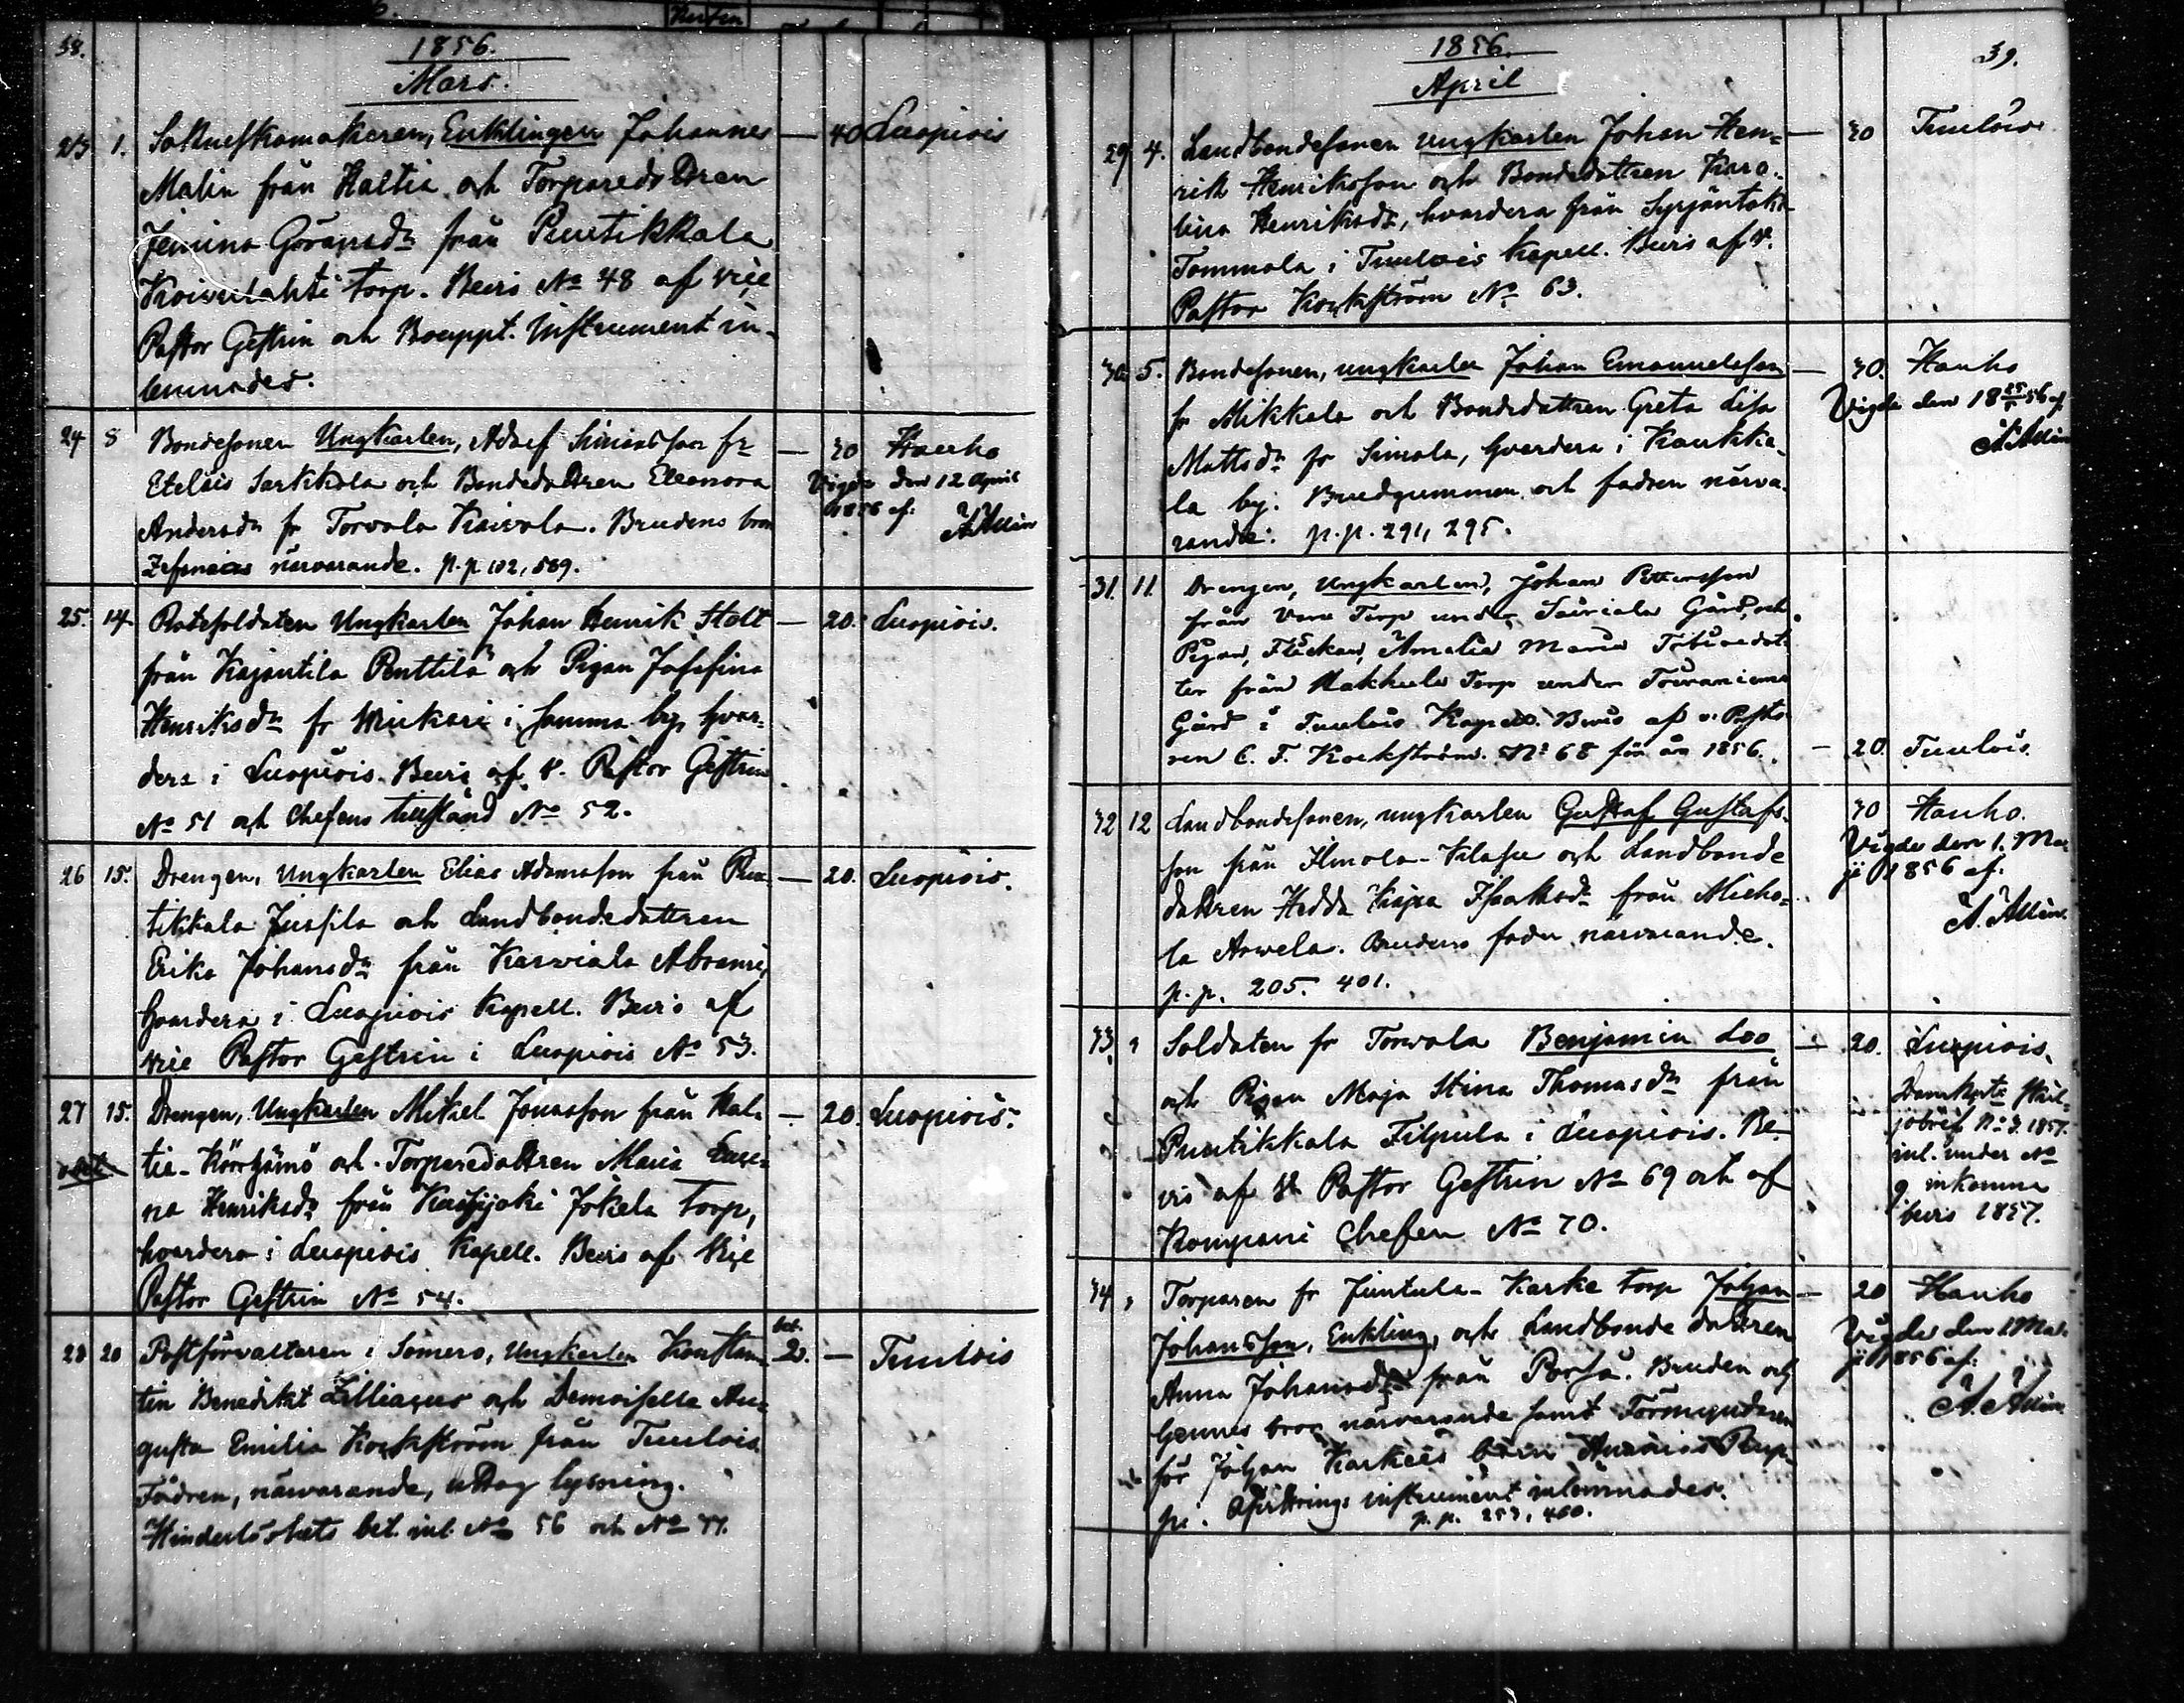 38.
1856.
Mars.
23 1. Enklingen Johannes — 40 Luopiois
Malin från Haltia och Torparedottren
Göransdr från Puutikkala
torp. Bevis No 48 af vice
Pastor Gestrin och Bouppt. Instrument in-
lemnades.
24 8 Bondesonen Ungkarlen, Adolf Simonsson fr — 30 Hauho
Sarkkola och Bondedottren Eleonora Vigde den 12 April
Andersdr fr Torvola Kaivola. Brudens bror 1856 af:
närvarande. p.p 102, 589.
25. 14 Rotesoldaten Ungkarlen Johan Henrik Stolt — 20. Luopiois.
från Kajantila Penttilä och Pigan Josefina
Henriksdr fr i samma by, hvar-
dera i Luopiois. Bevis af v. Pastor Gestrin
No 51 och Chefens tillstånd No 52.
26 15. Drengen, Ungkarlen Elias Adamsson från Puu- — 20. Luopiois.
tikkala Jussila och Landbondedottren
Erika Johansdr från Karviala
hvardera i Luopiois Kapell. Bevis af
vice Pastor Gestrin i Luopiois No 53.
27 15. Drengen, Ungkarlen Mikael Jonasson från Hal- — 20. Luopiois.
tia- och Torparedottren Maria
na Henriksdr från Jokela torp,
hvardera i Luopiois Kapell. Bevis af Vice
Pastor Gestrin No 54.
28 20 Postförvaltaren i Somero, Ungkarlen Konstan- bet. 2. — Tuulois
tin Benedikt Zilliacus och Demoiselle Au-
gusta Emilia Korkström från Tuulois.
Fadren, närvarande, uttog lysning.
Hinderlöshets bet. inl. No 56 och No 77.
1856.
April
39.
29 4. Landbondesonen ungkarlen Johan Hen- — 30 Tuulois
rik Henriksson och Bondedottren Karo-
lina Henriksdr, hvardera från Syrjäntaka
Tommola i Tuulois Kapell. Bevis af v.
Pastor Korkström No 63.
30. 5. Bondesonen, ungkarlen Johan Emanuelsson — 30. Hauho
fr Mikkola och Bondedottren Greta Lisa Vigde den 18 25/5 56 af
Mattsdr fr Simola, hvardera i Kaukka-
la by. Brudgummen och fadren närva-
rande. p.p. 291, 295.
31. 11 Drengen, Ungkarlen, Johan Pettersson
från Torp under Sairiala Gård, och
Pigan, Flickan, Amalia Maria
ter från Torp under
Gård i Tuulois Kapell. Bevis af v. Pasto-
ren C. F. Korkström No 68 för år 1856. — 20. Tuulois.
32 12 Landbondesonen, ungkarlen Gustaf Gustafs- 30 Hauho.
son från Ilmola- och Landbonde Vigde den 1. Ma-
dottren Hedda Kajsa Isaksdr från Micko- ji 1856 af.
la Arvela. Brudens fader närvarande.
p.p. 205. 401.
33 Soldaten fr Torvola Benjamin Loo — 20. Luopiois.
och Pigan Maja Stina Thomasdr från
Puutikkala Filpula i Luopiois. Be- jobref No 3. 1857.
vis af v. Pastor Gestrin No 69 och af inl. under No
Kompani Chefen No 70. 9 inkomna
bevis 1857.
34 Torparen fr Juntula- Karke torp Johan — 20 Hauho
Johansson, Enkling, och Landbonde dottren Vigde den 1 Ma-
Anna Johansdr från Porsa. Bruden och ji 1856 af:
hennes bror närvarande samt Förmyndaren
för Johan Karkes barn
pi. Afvittrings instrument inlämnades.
p.p. 253, 460.